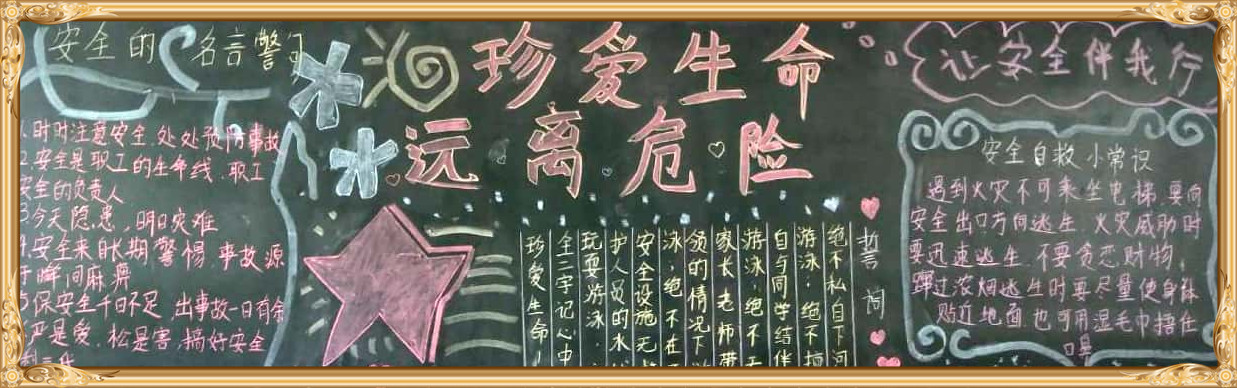 安全的名言警句
1.时时注意安全.处处预防事故
2.安全是职工的生命线.职工
安全的负责人
3今天隐患,明日灾难
4.安全来自长期警惕,事故源
于瞬间麻痹
5保安全千日不足,出事故一日有余
严是爱,松是害,搞好安全
利三代
珍爱生命
远离危险
誓词
绝不私自下河
游泳;绝不擅
自与同学结伴
游泳,绝不
家长,老师带
领的情况下
泳,绝不在
安全设施,无
护人员的水
玩耍游泳.
全字记心中
珍爱生命!
让安全伴我行
安全自救小常识
遇到火灾不可乘坐电梯.要向
安全出口方向逃生.火灾威胁时
要迅速逃生,不要贪恋财物,
过浓烟逃生时要尽量使身体
贴近地面也可用湿毛巾捂住
口鼻